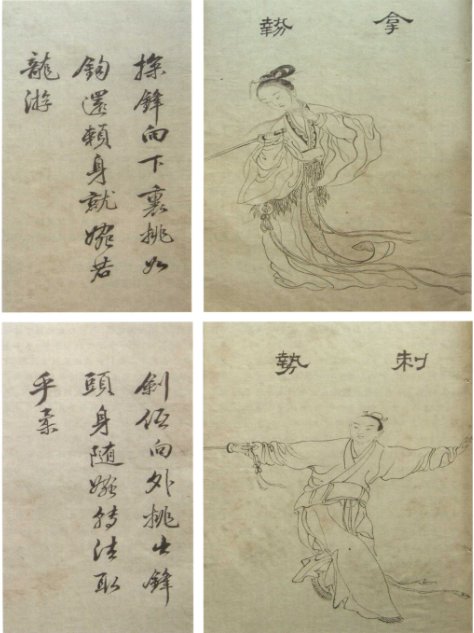 拿勢
探鋒向下裏挑如
鉤還賴身就婉若
龍游
刺勢
劍低向外挑出鋒
頭身隨婉轉法取
乎柔